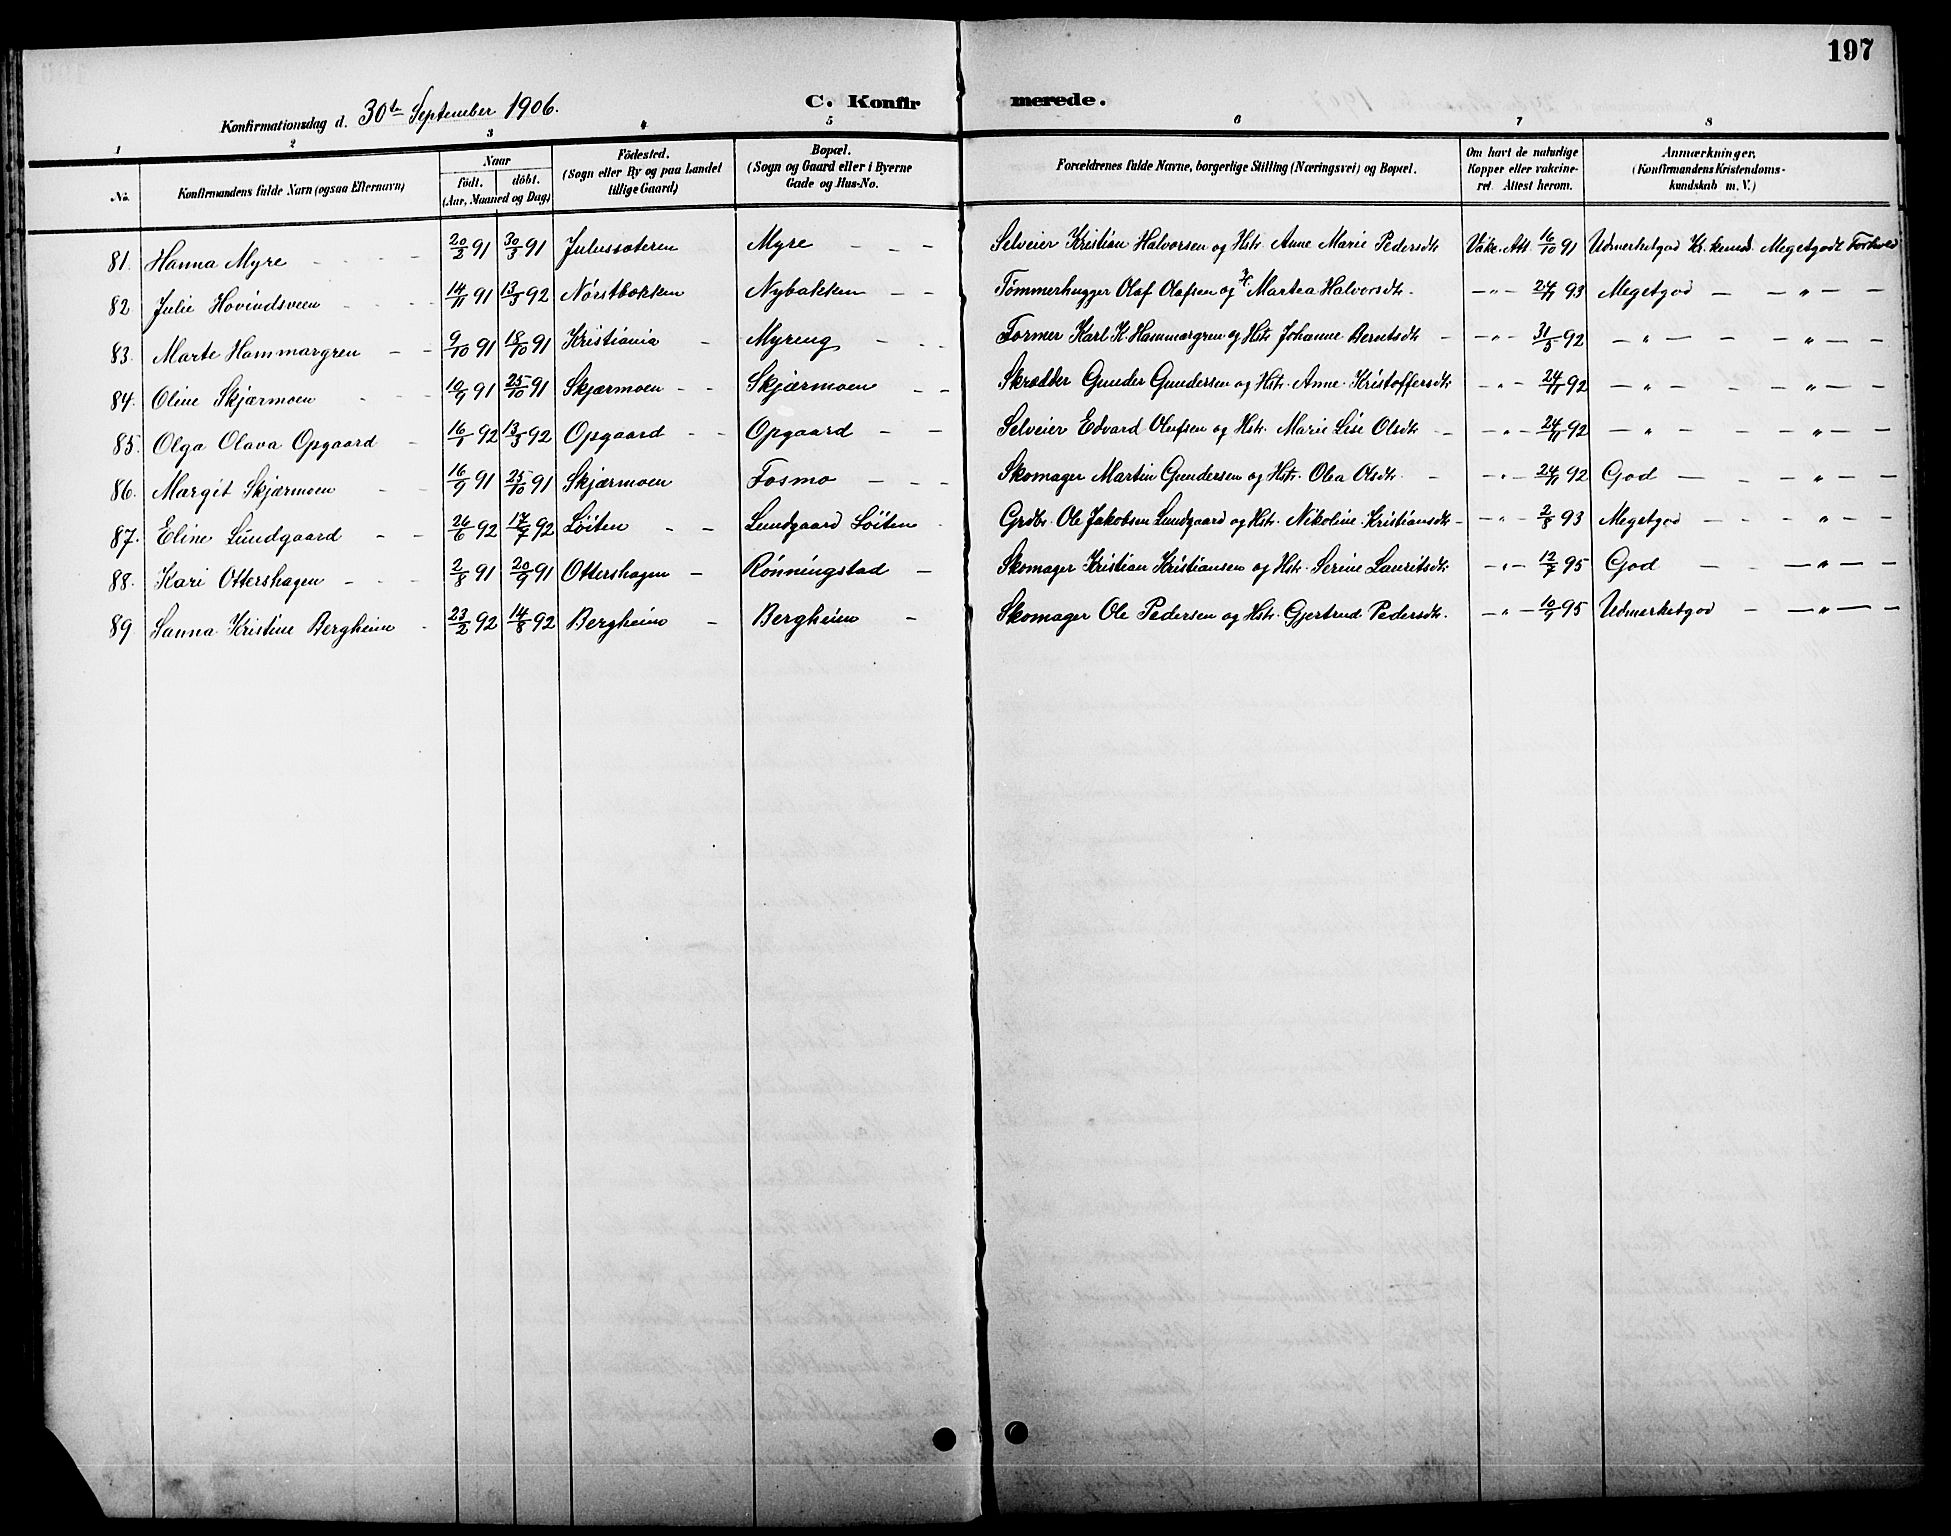 197
C. Konfirmerede.
Konfirmationsdag d. 30te September 1906.
1 2 3 4 5 6 7 8
No. Konfirmandens fulde Navn (ogsaa Efternavn) Naar født. døbt. (Aar, Maaned og Dag) Fødested. (Sogn eller By og paa Landet tillige Gaard) Bopæl. (Sogn og Gaard eller i Byerne Gade og Hus-No. Forældrenes fulde Navne, borgerlige Stilling (Næringsvei) og Bopæl. Om havt de naturlige Kopper eller vakcineret. Attest herom. Anmærkninger. (Konfirmandens Kristendomskundskab m. V.)
81. Hanna Myre 20/2 91 30/3 91 Julussæteren Myre Selveier Kristian Halvorsen og Hstr. Anne Marie Pedersdtr Vakc. Att. 16/10 91 Udmerketgod Kr. kundsk. Megetgodt Forhold
82 Julie Hovindsveen 14/11 91 13/3 92 Nørstbakken Nybakken Tømmerhugger Olaf Olafsen og Martea Halvorsdtr. — " — 24/11 93 Megetgod — — " — —
83. Marte Hammargren 9/10 91 18/10 91 Kristiania Myreng Former Karl K. Hammargren og Hstr Johanne Berntsdtr — " — 31/5 92 — " — — — " — —
84. Oline Skjærmoen 10/9 91 25/10 91 Skjærmoen Skjærmoen Skrædder Gunder Gundersen og Hstr. Anne Kristoffersdtr — " — 24/11 92 — " — — — " — —
85. Olga Olava Opgaard 16/1 92 13/3 92 Opgaard Opgaard Selveier Edvard Olufsen og Hstr. Marie Lise Olsdtr — " — 24/11 92 — " — — — " — —
86. Margit Skjærmoen 16/9 91 25/10 91 Skjærmoen Fosmo Skomager Martin Gundersen og Hstr. Olea Olsdtr. — " — 24/11 92 God — — " — —
87. Eline Lundgaard 26/6 92 17/7 92 Løiten Lundgaard Løiten Grdbr. Ole Jakobsen Lundgaard og Hstr. Nikoline Kristiansdtr — " — 2/8 93 Megetgod — — " — —
88. Kari Ottershagen 2/8 91 20/9 91 Ottershagen Rønningstad Skomager Kristian Kristiansen og Hstr. Serine Lauritsdtr — " — 12/7 95 God — — " — —
89 Sanna Kristine Bergheim 23/2 92 14/8 92 Bergheim Bergheim Skomager Ole Pedersen og Hstr. Gjertrud Pedersdtr. — " — 10/9 95 Udmerketgod — — " — —